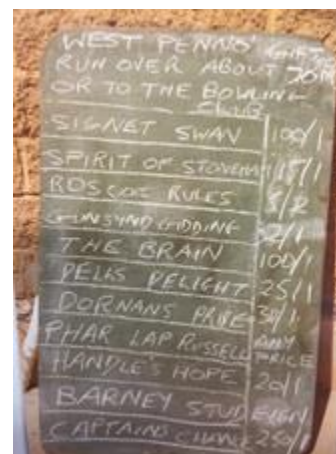 WEST PENNO' GIFT
RUN OVER ABOUT 70
OR TO THE BOWLING
CLUB
SIGNET SWAN 100/1
SPIRIT OF STONEHAM 15/1
ROSCOE RULES
GUNSYND GIDDING /1
THE BRAIN 100/1
DELLS DELIGHT 25/1
DORNANS PRIDE /1
PHAR LAP RUSSELL ANY PRICE
HANDLE'S HOPE 20/1
BARNEY STUD
CAPTAINS CHANCE 250/1